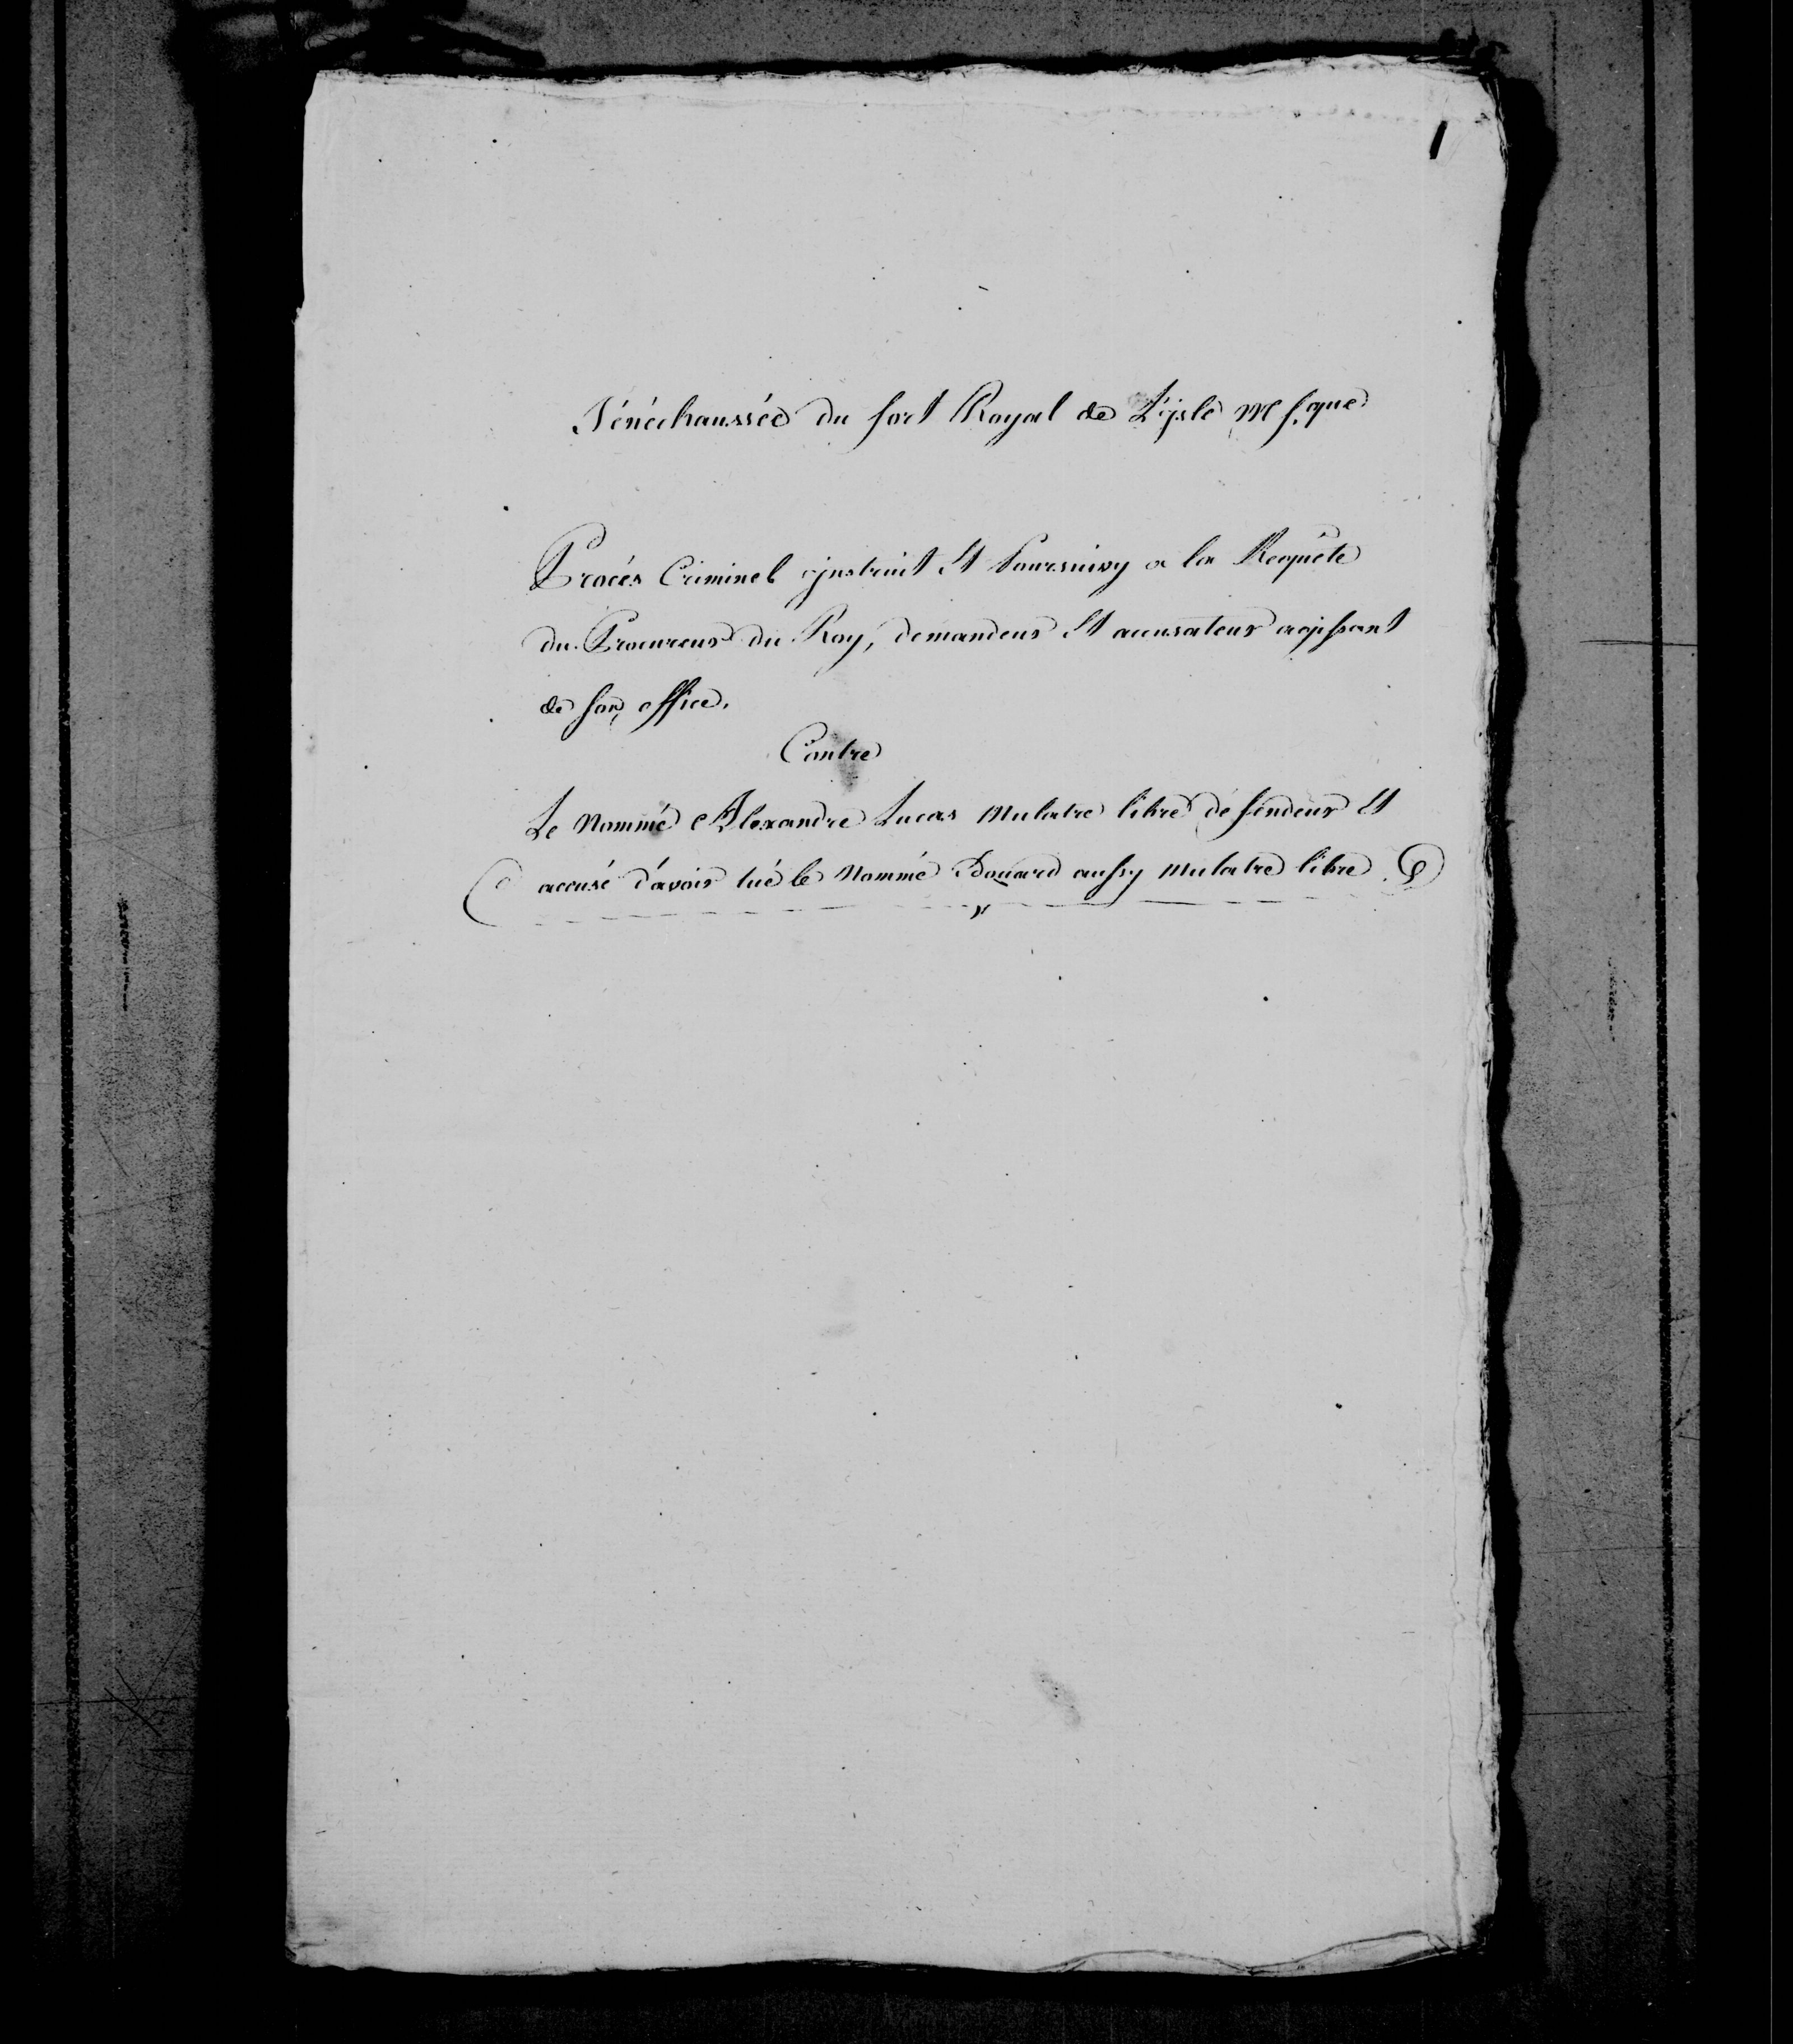 1
Sénéchaussée du fort Royal de L'isle M que
Procès Criminel instruit Et Poursuivy a la Requête
du Procureur du Roy, demandeur Et accusateur agissant
de son office.
Contre
Le Nommé Alexandre Lucas Mulatre libre défendeur Et
accusé d'avoir tué le Nommé Edouard aussy Mulatre libre